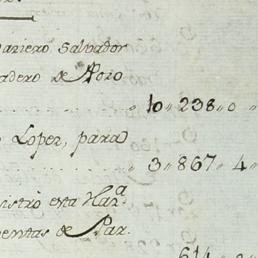 Salvador
adero de Moro
10 „ 238 „ 0 „
Lopez, para
3 „ 867 „ 4 „
nistró esta Har.ª
uentas de Par.
614